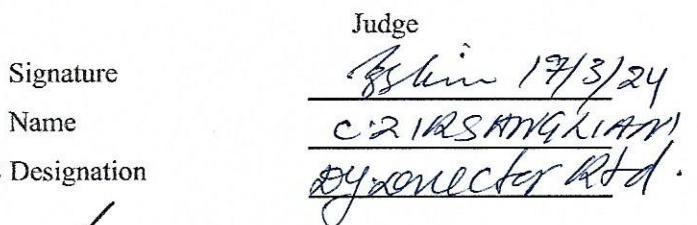 Judge
Signature 17/3/24
Name C.ZIRSANGLIANI
Designation Dy Director Rtd.